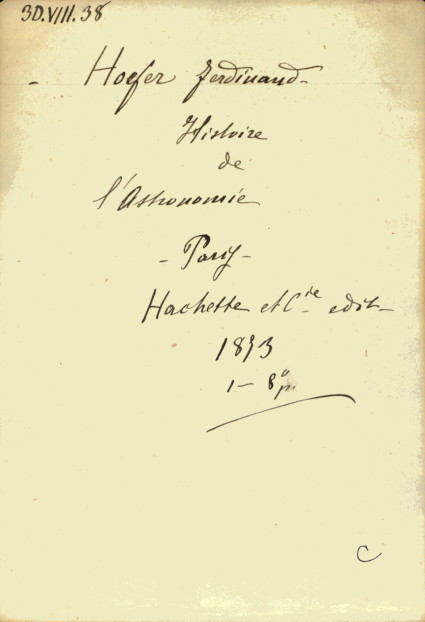 3D.VIII.38
- Hoefer Ferdinand-
Histoire
de
l'Astronomie
- Paris -
Hachette et Cie edit-
1873
1- 8º p.
C